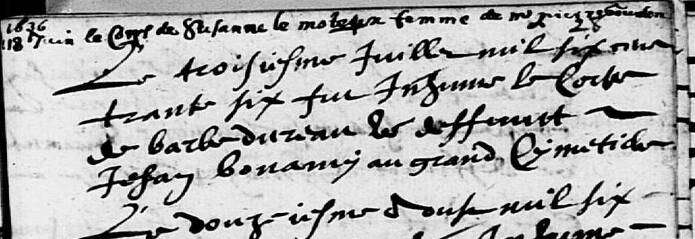 1636
18 Juin le Corps de Susanne le femme de me
Le troisiesme Juillet mil six cens
trante six fut Inhumé le Corps
de barbe dureau de deffunct
Jehan bonamy au grand Cymetiere
Le douziesme d'Aoust mil six